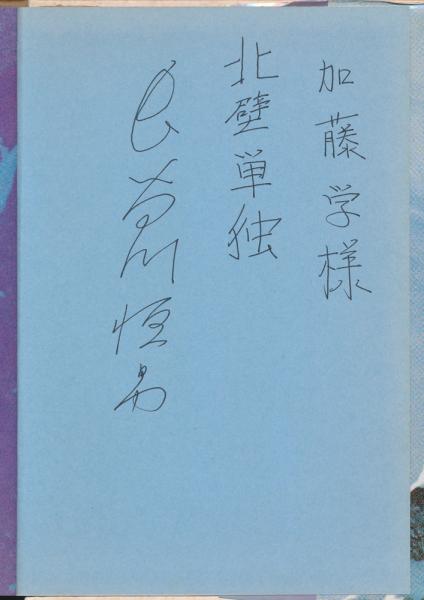 加藤学様
北壁単独
長谷川恒男